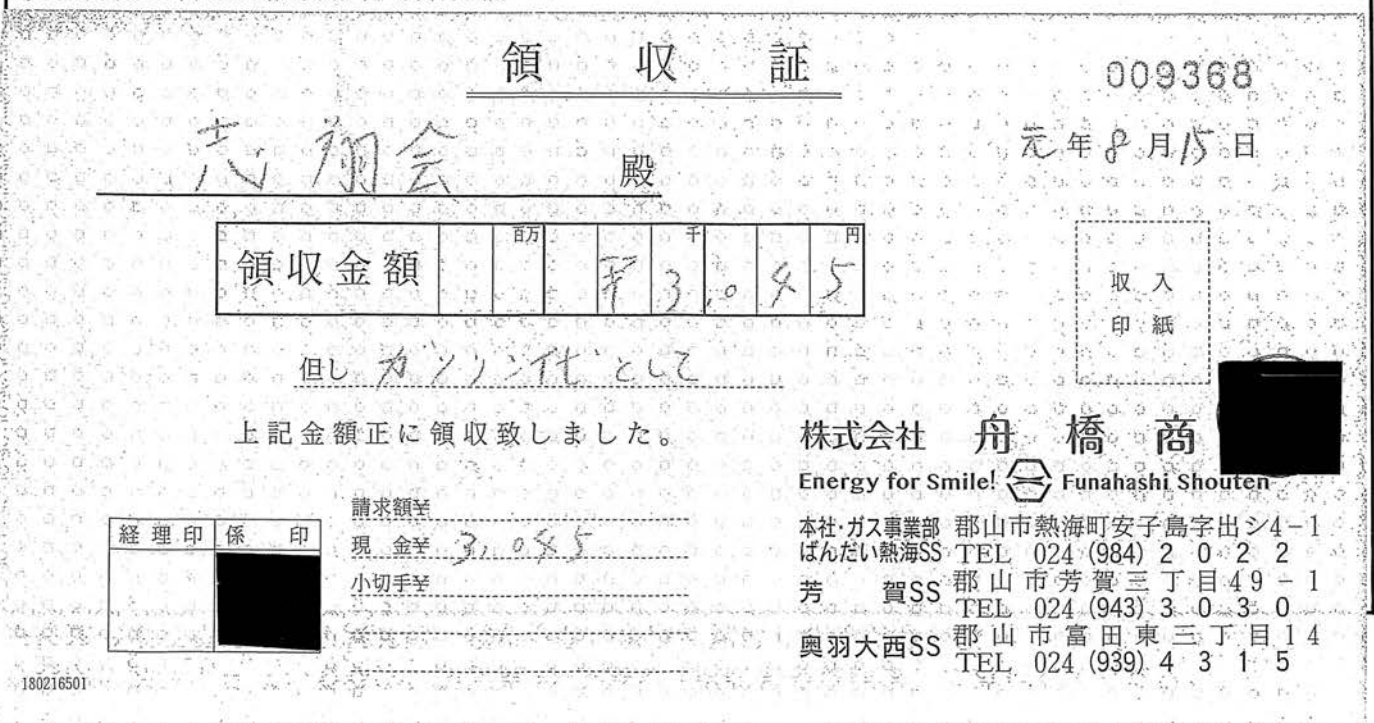 領収証
009368
元年8月15日
志翔会 殿
領収金額 百万 千 円
¥3,045
収入
印紙
但し ガソリン代として
上記金額正に領収致しました。
株式会社 舟橋商
Energy for Smile! Funahashi Shouten
請求額¥
現金¥ 3,045
小切手¥
経理印 係印
本社・ガス事業部 郡山市熱海町安子島字出シ4-1
ばんだい熱海SS TEL 024(984)2022
芳賀SS 郡山市芳賀三丁目49-1
TEL 024(943)3030
奥羽大西SS 郡山市富田東三丁目14
TEL 024(939)4315
180216501